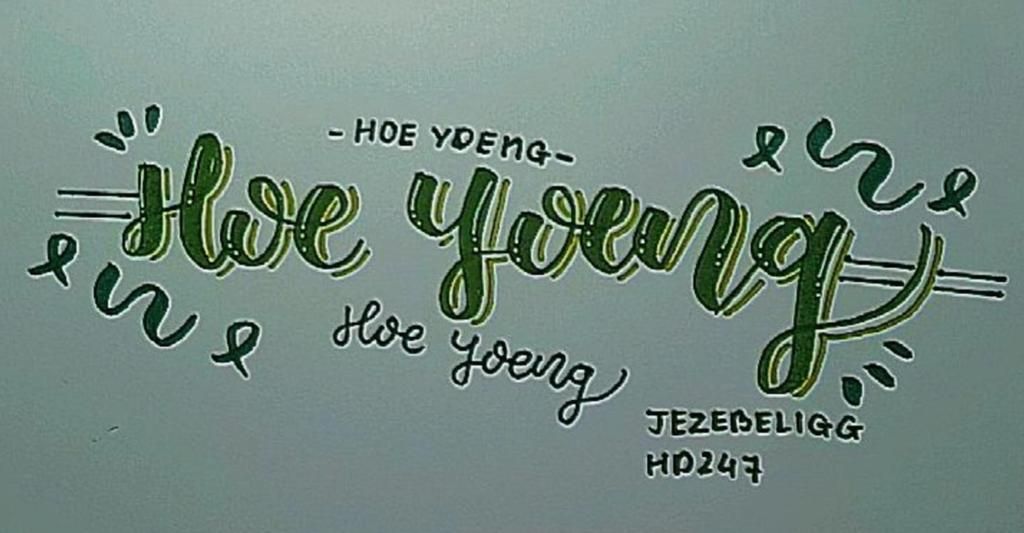 - HOE YOENG -
Hoe Yoeng
Hoe Yoeng
JEZEBELIGG
HD247